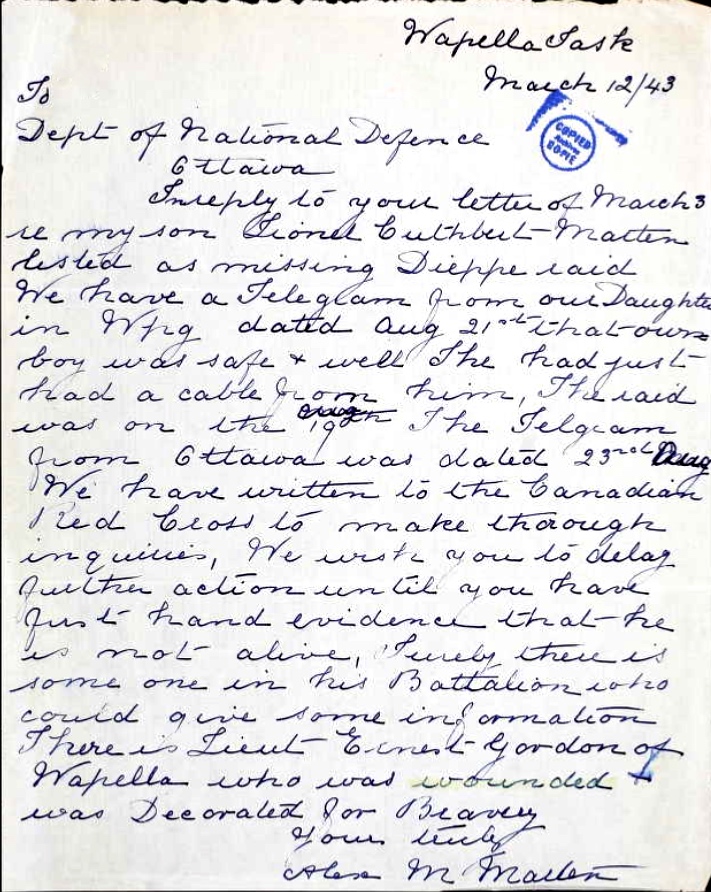 Wapella Sask
March 12/43
To
Dept of National Defence
Ottawa
COPIED
COPIE
In reply to your letter of March 3
re my son Lionel Cuthbert Matten
listed as missing Dieppe raid
We have a Telegram from our Daughte
in Wpg dated Aug 21st that our
boy was safe & well She had just
had a cable from him, The raid
was on the 19th The Telgram
from Ottawa was dated 23rd Aug
We have written to the Canadian
Red Cross to make thorough
inquiries, We wish you to delay
further action until you have
first hand evidence that he
is not alive, Surely there is
some one in his Battalion who
could give some information
There is Lieut Ernest Gordon of
Wapella who was wounded &
was Decorated for Bravery
Yours truly
Alex M Matten